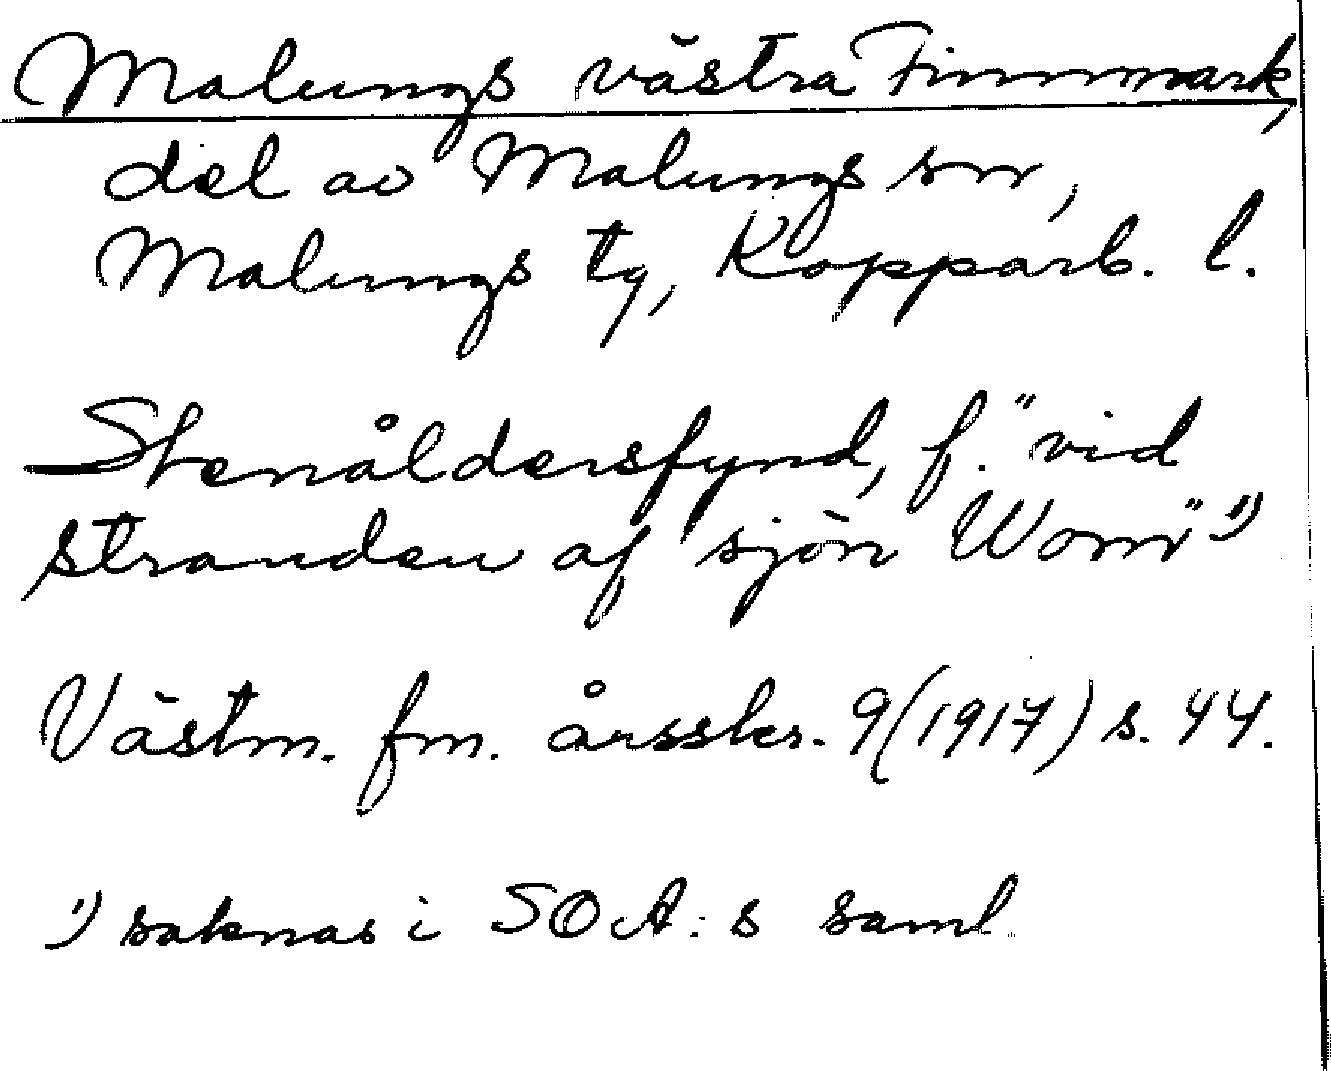 Malungs västra Finnmark,
del av Malungs sn,
Malungs tg, Kopparb. l.
Stenåldersfynd, f. "vid
stranden af sjön Wom" ¹⁾
Västm. fm. årsskr. 9 (1917) s. 44.
¹⁾ saknas i SOA:s saml.